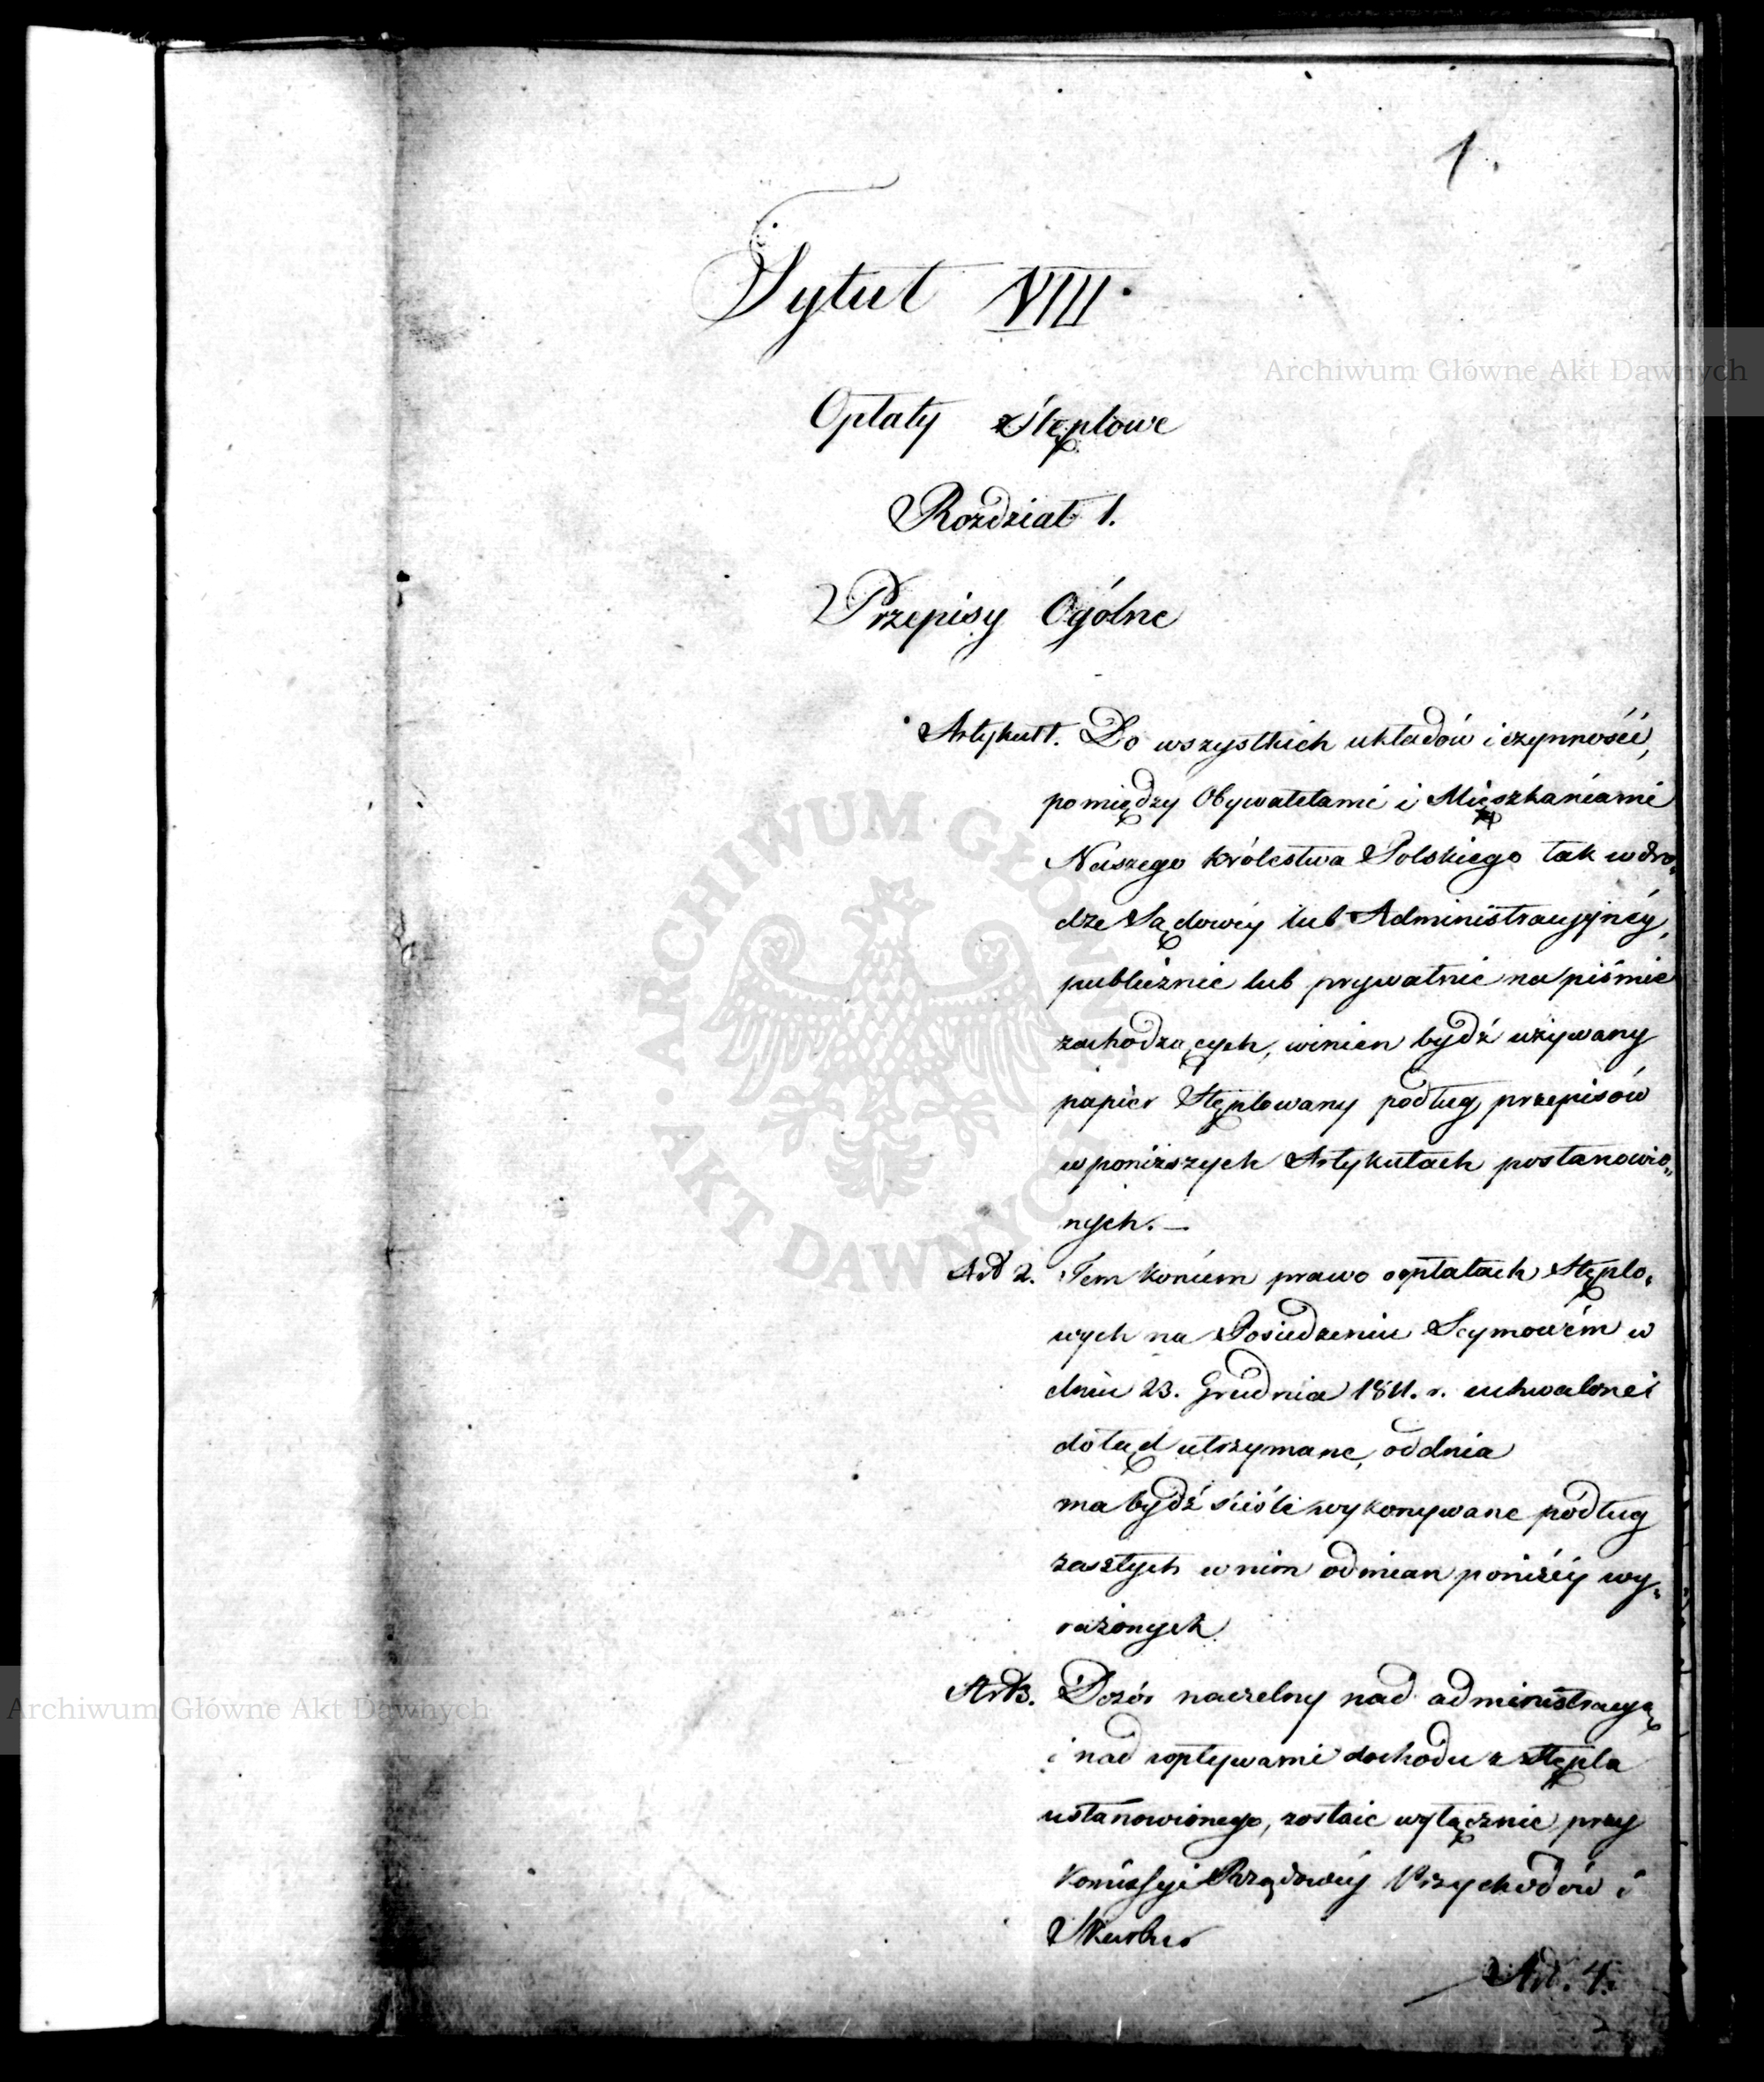 1.
Tytuł VIII.
Opłaty Stęplowe
Rozdział 1.
Przepisy Ogólne
Artykuł 1. Do wszystkich układów i czynności,
pomiędzy Obywatelami i Mieszkańcami
Naszego Królestwa Polskiego tak w dro„
dze Sądowéy lub Administracyjnéy,
publicznie lub prywatnie na piśmie
zachodzących, winien bydź używany
papier Stęplowany podług przepisów
w poniższych Artykułach postanowio„
nych. —
Art 2. Tem koncem prawo o opłatach Stęplo„
wych na Posiedzeniu Seymowém w
dniu 23. Grudnia 1811. r. uchwalone i
dotąd utrzymane, od dnia
ma bydź ściśle wykonywane podług
zaszłych w nim odmian poniżéy wy„
rażonych.
Art 3. Dozór naczelny nad administracyą
i nad wpływami dochodu z Stępla
ustanowionego, zostaie wyłącznie przy
Kommissyi Rządowéy Przychodów i
Skarbu
Art. 4.
Archiwum Główne Akt Dawnych
Archiwum Główne Akt Dawnych
ARCHIWUM GŁÓWNE AKT DAWNYCH